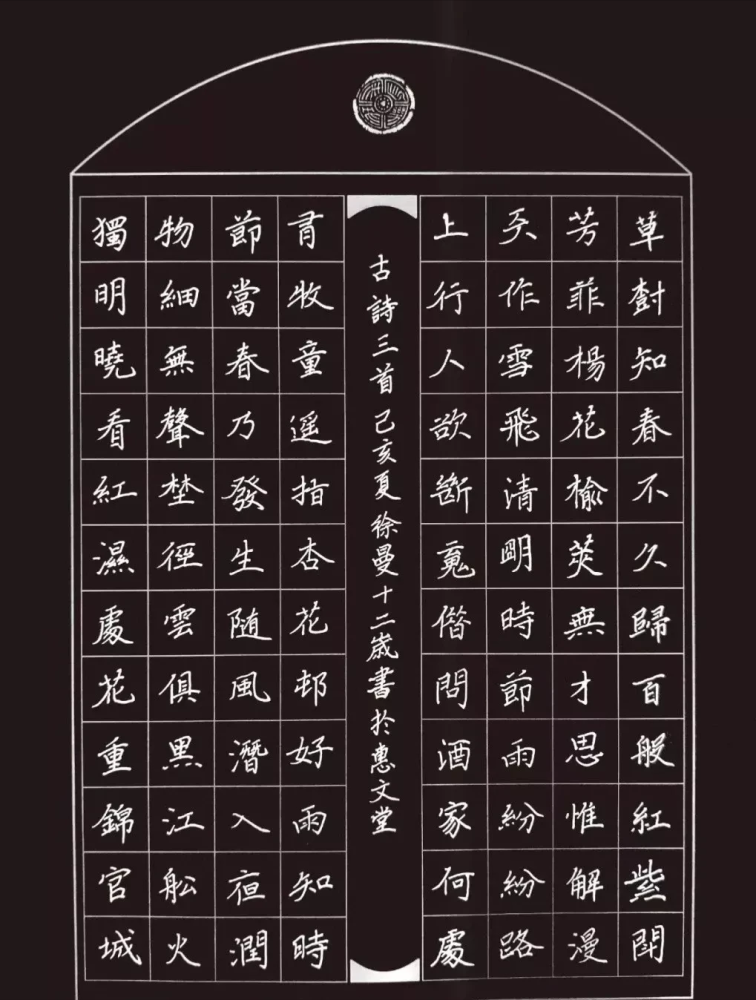 草樹知春不久歸百般紅紫鬥
芳菲楊花榆莢無才思惟解漫
天作雪飛清明時節雨紛紛路
上行人欲斷魂借問酒家何處
古詩三首己亥夏徐曼十二歲書於惠文堂
有牧童遥指杏花邨好雨知時
節當春乃發生随風潛入夜潤
物細無聲埜徑雲俱黑江舩火
獨明曉看紅濕處花重錦官城